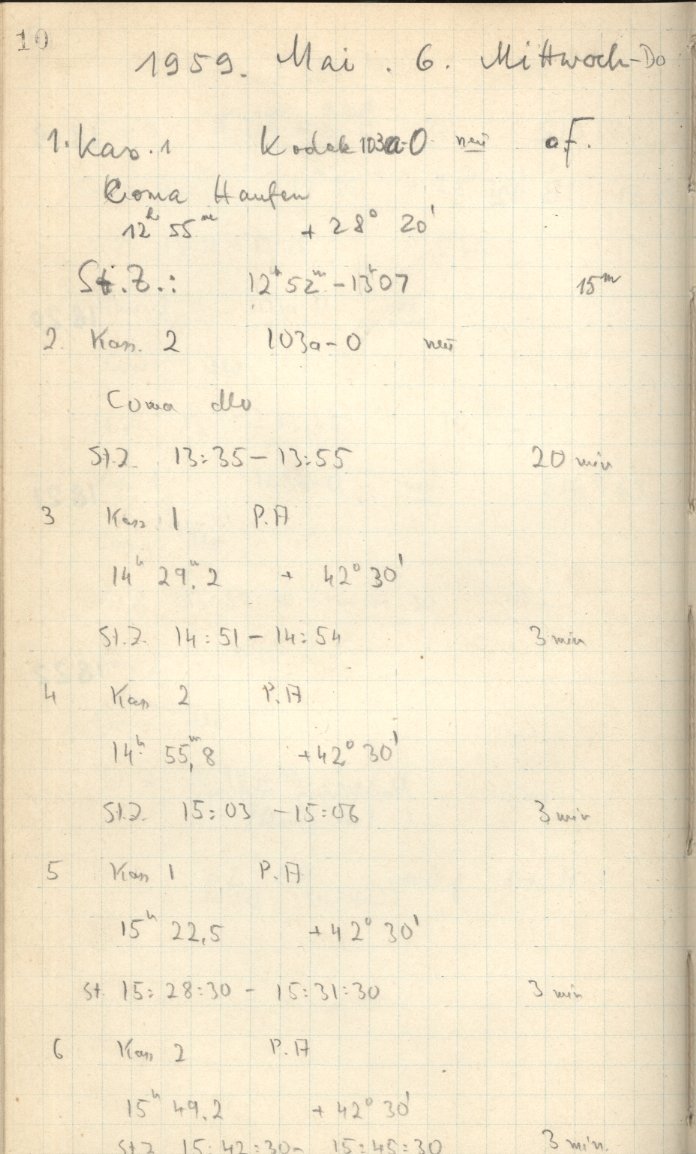 10
1959. Mai . 6. Mittwoch-Do
1. Kas. 1 Kodak 103a-O neu o.F.
Coma Haufen
12h 55m + 28° 20'
St.Z.: 12h52m - 13h07 15m
2. Kas. 2 103a-O neu
Coma dto
St.Z. 13:35 - 13:55 20 min
3 Kas 1 P.A
14h 29m,2 + 42° 30'
St.Z. 14:51 - 14:54 3 min
4 Kas 2 P.A
14h 55m,8 + 42° 30'
St.Z. 15:03 - 15:06 3 min
5 Kas 1 P.A
15h 22,5 + 42° 30'
St. 15:28:30 - 15:31:30 3 min
6 Kas 2 P.A
15h 49.2 + 42° 30'
St.Z. 15:42:30 - 15:45:30 3 min.